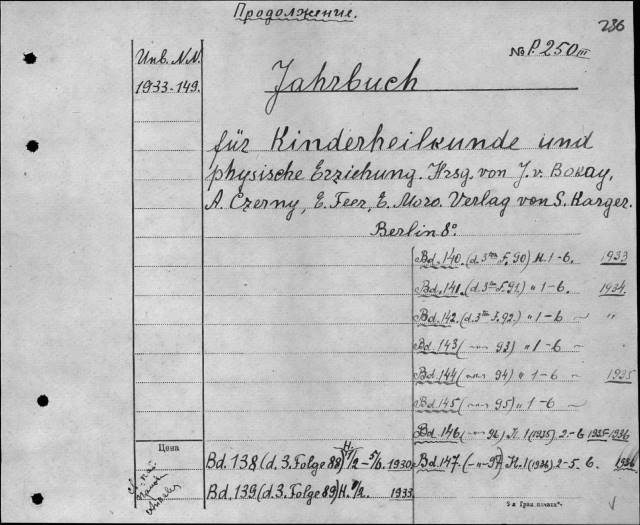 Продолжение.
236
Инв. N.N.
1933-149.
№ P. 250 III
Jahrbuch
für Kinderheilkunde und
physische Erziehung. Hrsg. von J. v. Bokay,
A. Czerny, E. Feer, E. Moro. Verlag von S. Karger.
Berlin 8°
Bd. 140. (d. 3ten F. 90) H. 1-6. 1933
Bd. 141. (d. 3ten F. 91) " 1-6. 1934.
Bd. 142. (d. 3ten F. 92.) " 1-6 – "
Bd. 143 ( 93) " 1-6 –
Bd. 144 ( 94) " 1-6 – 1935
Bd. 145 ( 95) " 1-6 –
Bd. 146 ( 96) H. 1 (1935) 2-6 1935-1936
Цена
Bd. 138 (d. 3. Folge 88) H. 1/2 - 5/6. 1930
Bd. 147. (-"- 97) H. 1 (1936) 2-5. 6. 1936
Bd. 139 (d. 3. Folge 89) H. 1/2. 1933